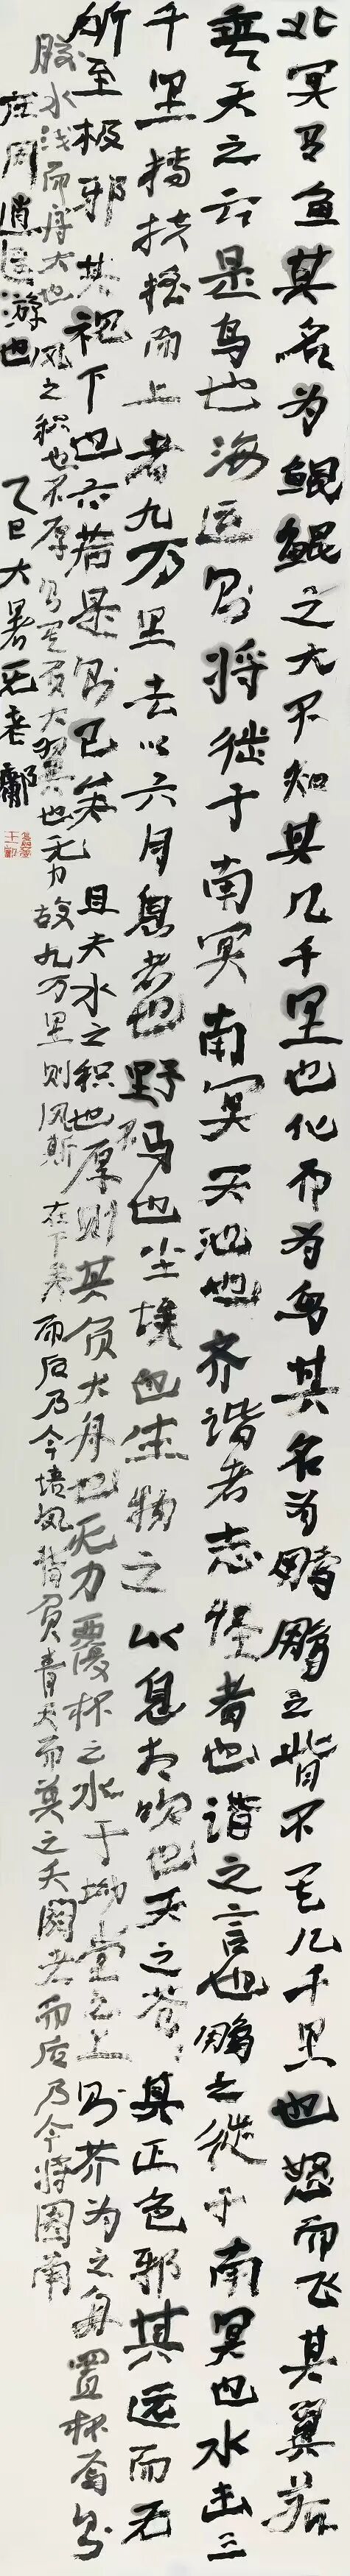 北冥有鱼其名为鲲鲲之大不知其几千里也化而为鸟其名为鹏鹏之背不知几千里也怒而飞其翼若
垂天之云是鸟也海运则将徙于南冥南冥天池也齐谐者志怪者也谐之言也鹏之徙于南冥也水击三
千里抟扶摇而上者九万里去以六月息者也野马也尘埃也生物之以息相吹也天之苍苍其正色邪其远而无
所至极邪其视下也亦若是则已矣且夫水之积也厚则其负大舟也无力覆杯之水于坳堂之上则芥为之舟置杯焉则
胶水浅而舟大也风之积也不厚则其负大翼也无力故九万里则风斯在下矣而后乃今培风背负青天而莫之夭阏者而后乃今将图南
庄周逍遥游也
乙巳大暑